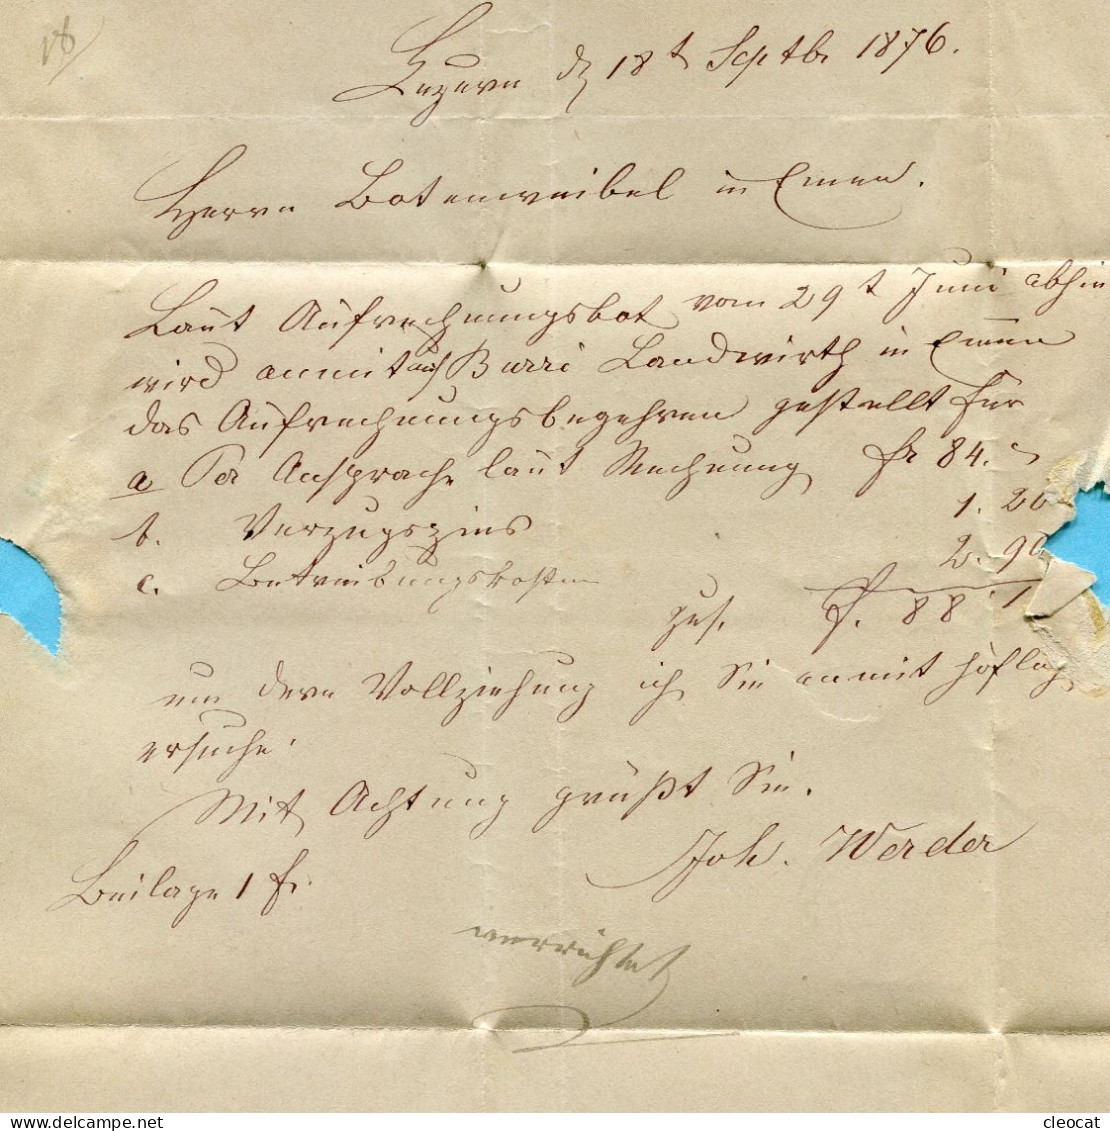 18
Luzern d 18t Septbr 1876.
Herrn Botenweibel in Emen.
Laut Aufrechnungsbot vom 29t Juni abhin
wird anmit auf Burri Landwirth in Emen
das Aufrechnungsbegehren gestellt für
a Per Ansprache laut Rechnung fr 84. –
b. Verzugszins 1. 20
c. Betreibungskosten 2. 90
zus. fr. 88. 1
um dern Vollziehung ich Sie anmit höflich
ersuche.
Mit Achtung grüßt Sie.
Joh. Werder
Beilage 1 fr.
verrichtet
cleocat